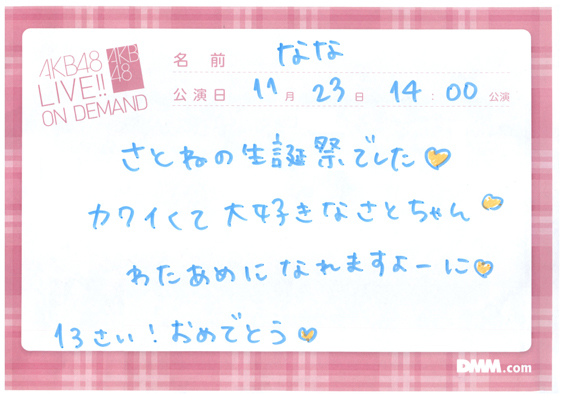 AKB48
LIVE!!
ON DEMAND
AKB
48
名前 なな
公演日 11月23日 14:00公演
さとねの生誕祭でした
カワイくて大好きなさとちゃん
わたあめになれますよーに
13さい!おめでとう
DMM.com